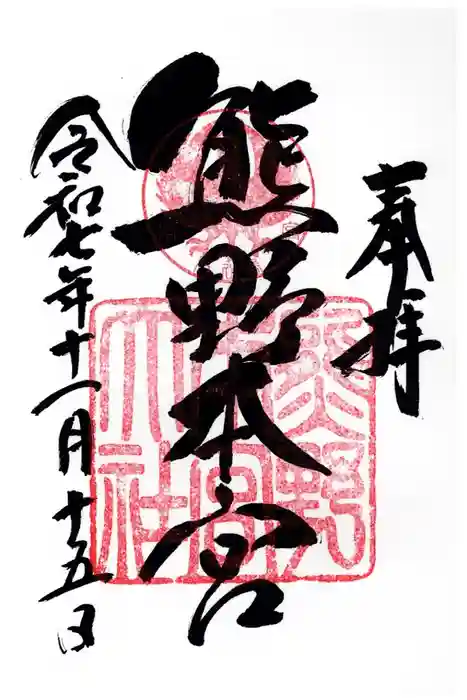 奉拝
熊野本宮
令和七年十一月十五日
熊野
本宮
大社